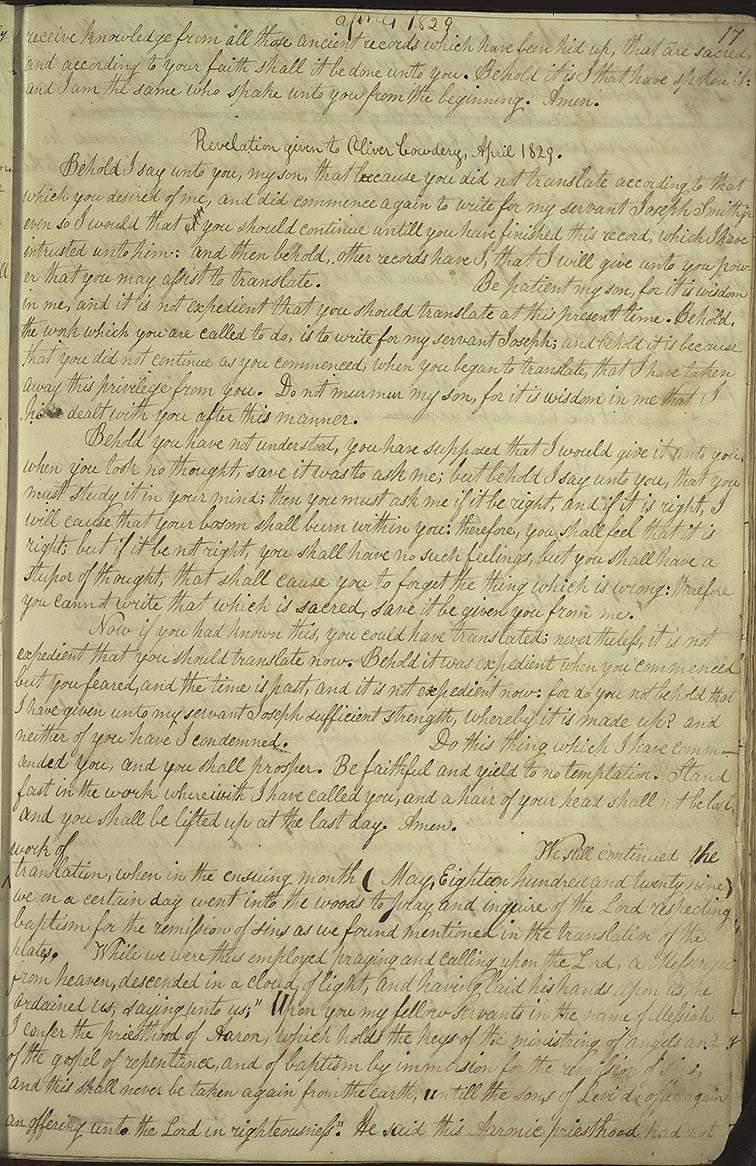 april 1829
17
receive knowledge from all those ancient records which have been hid up, that are sacred,
and according to your faith shall it be done unto you. Behold it is I that have spoken it:
and I am the same who spake unto you from the beginning. Amen.
Revelation given to Oliver Cowdery, April 1829.
Behold I say unto you, my son, that because you did not translate according to that
which you desired of me, and did commence again to write for my servant Joseph Smith jr
even so I would that you should continue untill you have finished this record, which I have
intrusted unto him: and then behold, other records have I, that I will give unto you pow-
er that you may assist to translate. Be patient my son, for it is wisdom
in me, and it is not expedient that you should translate at this present time. Behold,
the work which you are called to do, is to write for my servant Joseph; and behold it is because
that you did not continue as you commenced, when you began to translate, that I have taken
away this privilege from you. Do not murmur my son, for it is wisdom in me that I
have dealt with you after this manner.
Behold you have not understood, you have supposed that I would give it unto you,
when you took no thought, save it was to ask me; but behold I say unto you, that you
must study it in your mind; then you must ask me if it be right, and if it is right, I
will cause that your bosom shall burn within you: therefore, you shall feel that it is
right; but if it be not right, you shall have no such feelings, but you shall have a
stupor of thought, that shall cause you to forget the thing which is wrong: therefore
you cannot write that which is sacred, save it be given you from me.
Now if you had known this, you could have translated; nevertheless, it is not
expedient that you should translate now. Behold it was expedient when you commenced
but you feared, and the time is past, and it is not expedient now: for do you not behold that
I have given unto my servant Joseph sufficient strength, whereby it is made up? and
neither of you have I condemned. Do this thing which I have comm-
anded you, and you shall prosper. Be faithful and yield to no temptation. Stand
fast in the work wherewith I have called you, and a hair of your head shall not be lost,
and you shall be lifted up at the last day. Amen.
We still continued the
work of
translation, when in the ensuing month (May, Eighteen hundred and twenty nine)
we on a certain day went into the woods to pray and inquire of the Lord respecting
baptism for the remission of sins as we found mentioned in the translation of the
plates. While we were thus employed praying and calling upon the Lord, a Messenger
from heaven, descended in a cloud of light, and having laid his hands upon us, he
ordained us, saying unto us; "Upon you my fellow servants in the name of Messiah
I confer the priesthood of Aaron, which holds the keys of the ministring of angels and
of the gospel of repentance, and of baptism by immersion for the remission of sins,
and this shall never be taken again from the earth, untill the sons of Levi do offer again
an offering unto the Lord in righteousness". He said this Aaronic priesthood had not